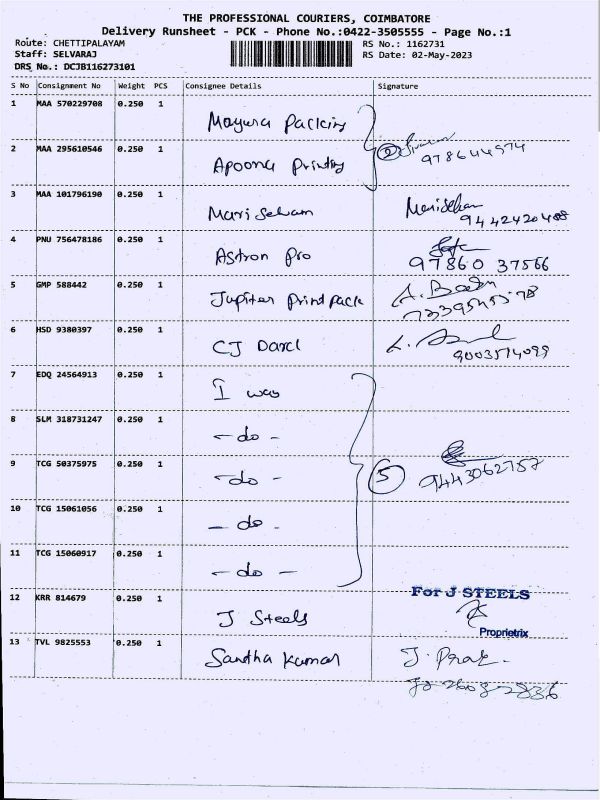 THE PROFESSIONAL COURIERS, COIMBATORE
Delivery Runsheet - PCK - Phone No.:0422-3505555 - Page No.:1
Route: CHETTIPALAYAM RS No.: 1162731
Staff: SELVARAJ RS Date: 02-May-2023
DRS No.: DCJB116273101
S No Consignment No Weight PCS Consignee Details Signature
1 MAA 570229708 0.250 1 Mayura Packing
2 MAA 295610546 0.250 1 Apoona Printing 2
3 MAA 101796190 0.250 1 Mari Selvam 9442420488
4 PNU 756478186 0.250 1 Astron Pro 97860 37566
5 GMP 588442 0.250 1 Jupiter Print pack
6 HSD 9380397 0.250 1 CJ Darcl 9003514099
7 EDQ 24564913 0.250 1 I was
8 SLM 318731247 0.250 1 - do -
9 TCG 50375975 0.250 1 - do - 5 9443062757
10 TCG 15061056 0.250 1 - do -
11 TCG 15060917 0.250 1 - do -
12 KRR 814679 0.250 1 J Steels For J STEELS
Proprietrix
13 TVL 9825553 0.250 1 Santha Kumar